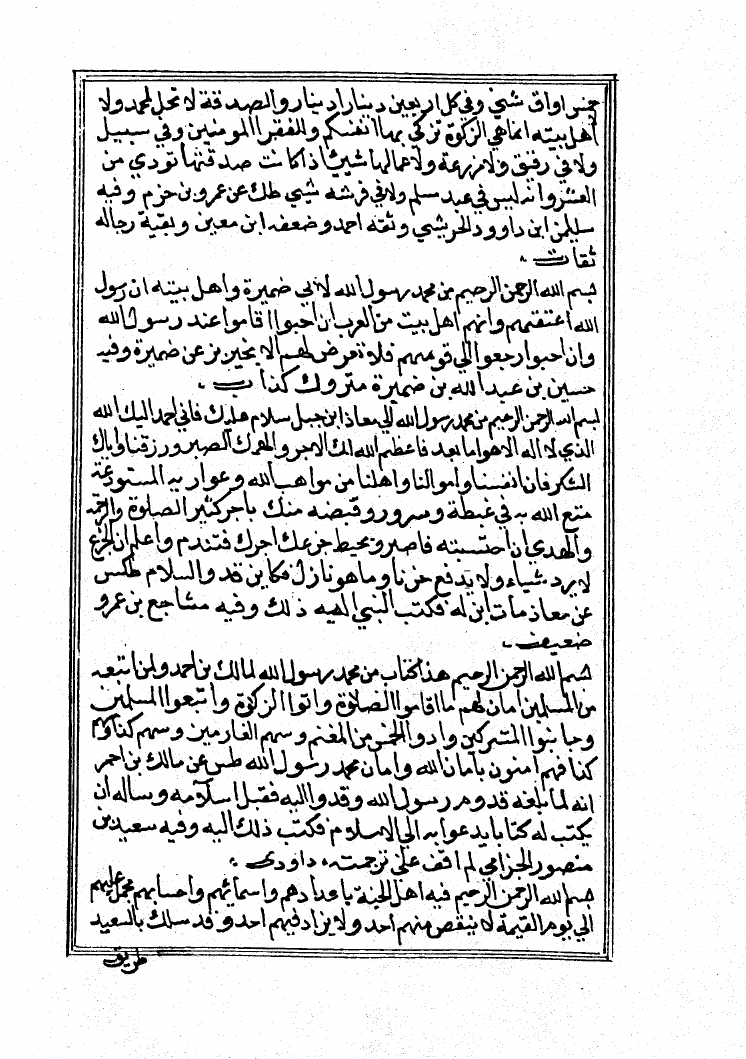 خمس اواق شيئ وفي كل اربعين دينارا دينار والصدقة لا تحل لمحمد ولا
أهل بيته انما هي الزكوة تزكى بها انفسكم والفقراء المومنين وفي سبيل
ولا في رقيق ولا مزرعة ولا عمالها شيئ اذا كانت صدقتها تودي من
العشر وانه ليس في عبد مسلم ولا في فرسه شيئ طك عن عمرو بن حزم وفيه
سليمن ابن داوود الحرشي وثقه احمد وضعفه ابن معين وبقية رجاله
ثقات .
بسم الله الرحمن الرحيم من محمد رسول الله لأبي ضميرة واهل بيته ان رسول
الله اعتقتهم وانهم اهل بيت من العرب ان احبوا اقاموا عند رسول الله
وان احبوا رجعوا الي قومهم فلا تعرض لهم الا بخير بز عن ضميرة وفيه
حسين بن عبد الله بن ضميرة متروك كذاب .
بسم الله الرحمن الرحيم من محمد رسول الله الي معاذ ابن جبل سلام عليك فاني احمد اليك الله
الذي لا اله الا هو اما بعد فاعظم الله لك الاجر والهمك الصبر ورزقنا واياك
الشكر فان انفسنا واموالنا واهلنا من مواهب الله وعواريه المستودعة
متع الله به في غبطة وسرور وقبضه منك بأجر كثير الصلوة والرحمة
والهدي ان احتسبته فاصبر ويحبط جزعك اجرك فتندم واعلم ان الجزع
لا يرد شياء ولا يدفع حزنا وما هو نازل فكاين قد والسلام طكس
عن معاذ مات ابن له فكتب النبي اليه ذلك وفيه مشاجع بن عمرو
ضعيف .
بسم الله الرحمن الرحيم هذا كتاب من محمد رسول الله لمالك بن احمد ولمن اتبعه
من المسلمين امان لهم ما اقاموا الصلاة واتوا الزكوة واتبعوا المسلمين
وجانبوا المشركين وادوا الخمس من المغنم وسهم الغارمين وسهم كذا وسهم
كذا فهم امنون بأمان الله وامان محمد رسول الله طس عن مالك بن احمر
انه لما بلغه قدوم رسول الله وفد واليه فقبل اسلامه وساله ان
يكتب له كتابا يدعوا به الي الاسلام فكتب ذلك اليه وفيه سعيد بن
منصور الجزامي لم اقف علي ترجمته داودى .
بسم الله الرحمن الرحيم فيه اهل الجنة باعدادهم واسمائهم واحسابهم مجمل عليهم
الي يوم القيمة لا ينقص منهم احد ولا يزاد فيهم احد وقد سلك بالسعيد
طريق